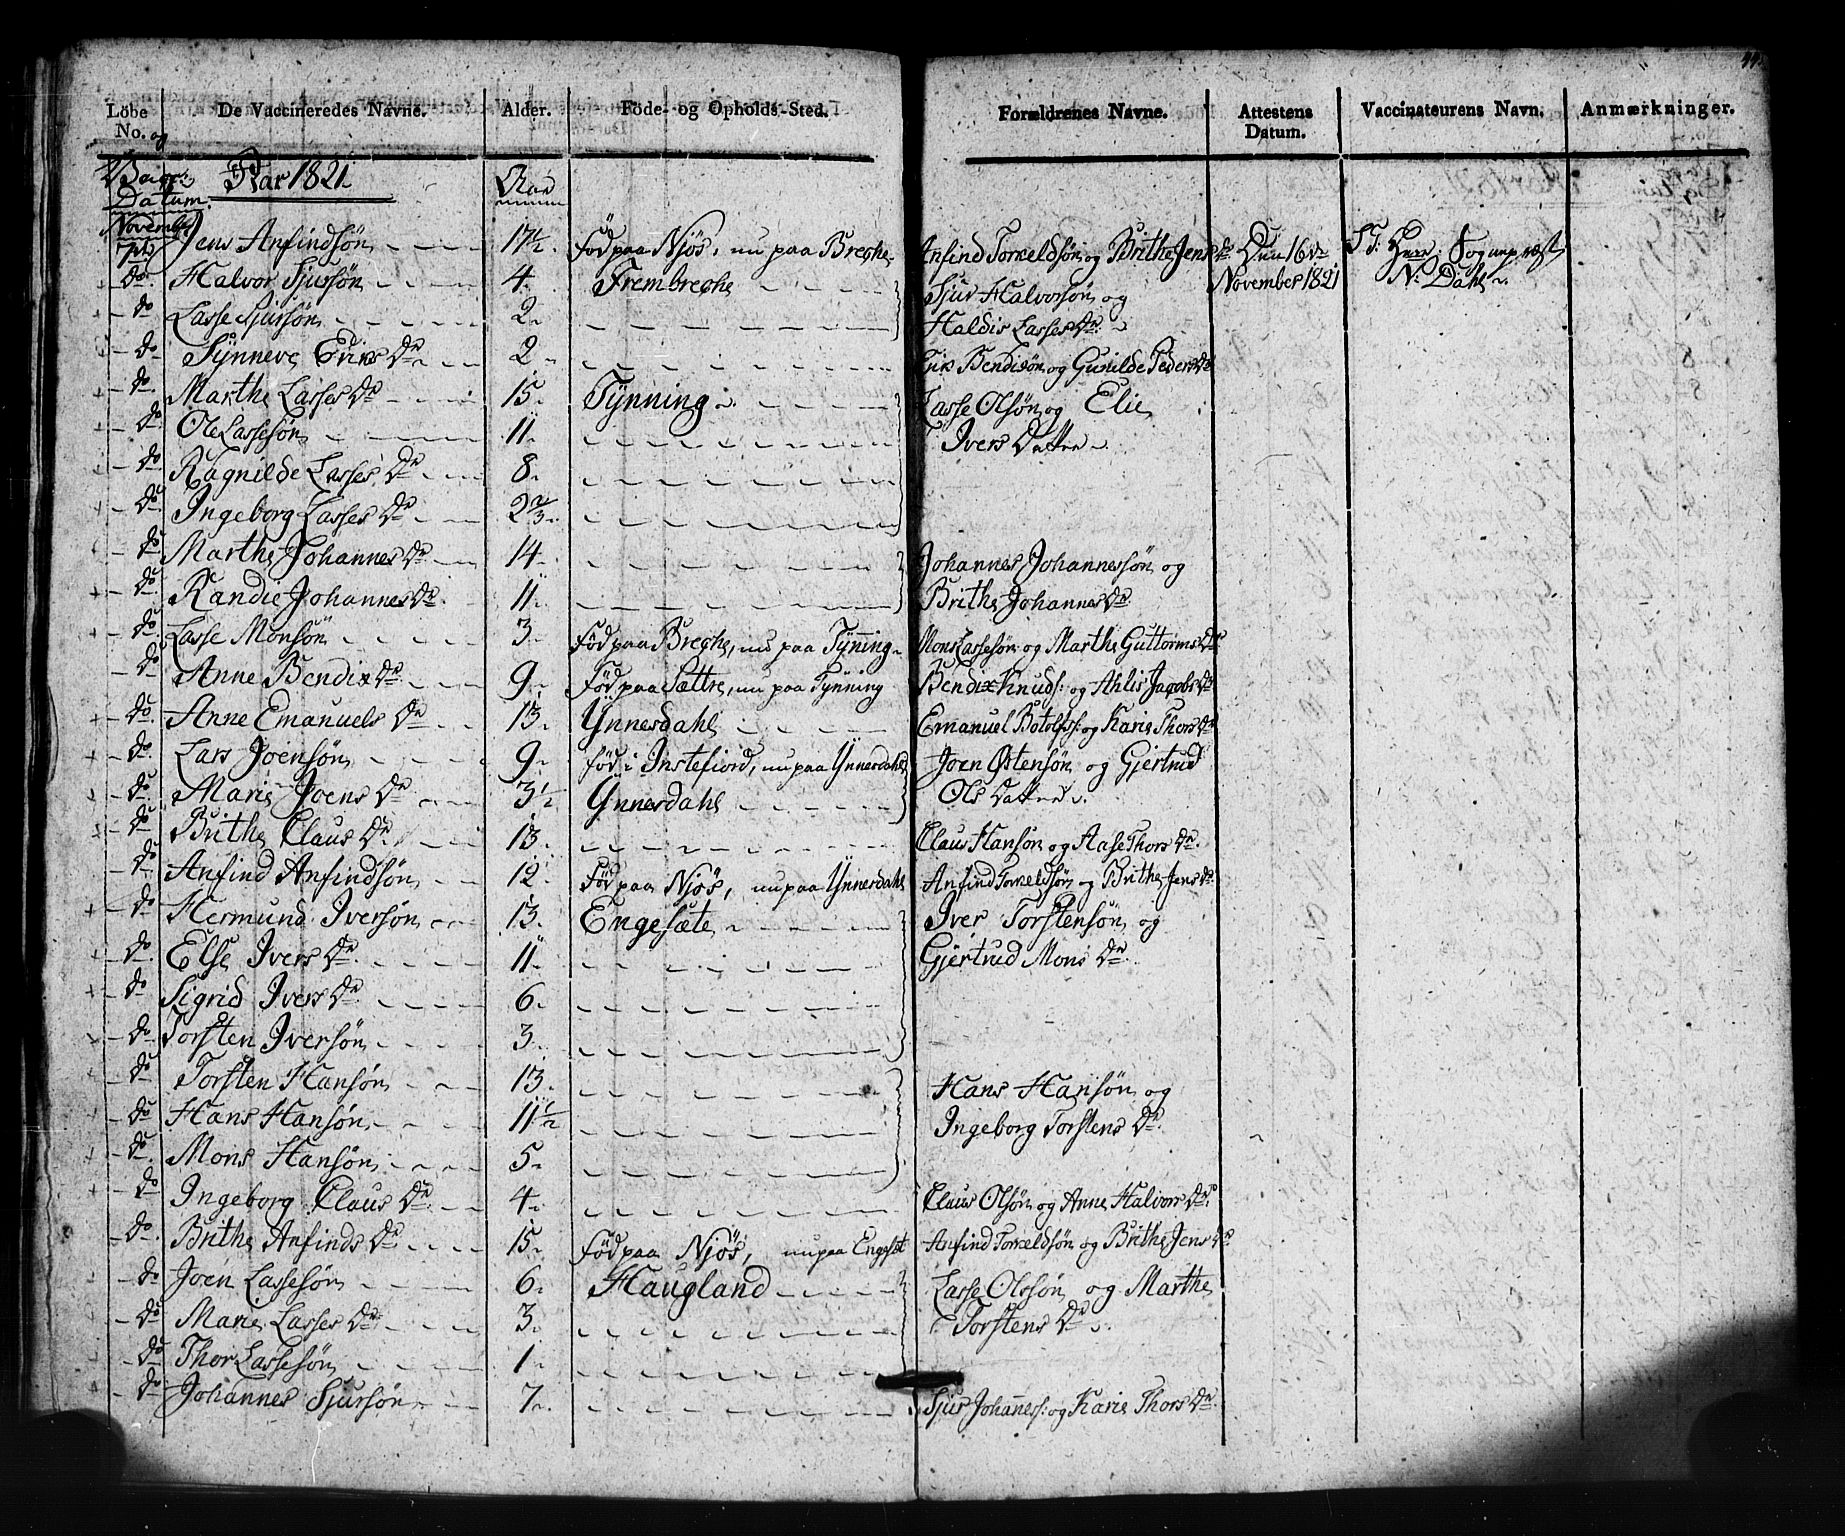 44
Löbe No. og De Vaccineredes Navne. Alder. Föde- og Opholds-Sted. Forældrenes Navne. Attestens Datum. Vaccinateurens Navn. Anmærkninger.
Datum. Aar 1821. Aar
November 7de Jens Anfindsön 17 1/2 Föd paa Njös, nu paa Breche Anfind Torkeldsön og Brithe Jens Dr Den 16de S. T. Herr Sognepræst
do. Halvor Sjursön 4. Frembreche Sjur Halvorsön og November 1821 N. Dahl.
do Lasse Sjursön 2 Haldis Lasses Dr.
do Synneve Erics Dr 2 Eric Bendixön og Gunilde Peders Dr
do. Marthe Lasses Dr 15. Tynning Lasse Olsön og Elie
do Ole Lassesön 11. Ivers Datter
do Ragnilde Lasses Dr 8.
do. Ingeborg Lasses Dr 2 2/3
do Marthe Johannes Dr 14 Johannes Johannessön og
do Randie Johannes Dr. 11. Brithe Johannes Dr
do. Lasse Monsön 3 Föd paa Breche, nu paa Tynning Mons Lassesön og Marthe Guttorms Dr
do Anne Bendix Dr. 9. Föd paa Sættre, nu paa Tynning Bendix Knuds: og Ahlis Jacobs Dr
do Anne Emanuels Dr 13. Ynnesdahl Emanuel Botolfs: og Karie Thors Dr
do. Lars Joensön 9. föd i Instefiord, nu paa Ynnesdahl Joen Østensön og Gjertrud
do. Marie Joens Dr 3 1/2 Ynnesdahl Ols Datter.
do Brithe Claus Dr 13. Claus Hansön og Aase Thors Dr.
do Anfind Anfindsön 12. Föd paa Njös, nu paa Ynnesdahl Anfind Torkeldsön og Brithe Jens Dr
do Hermund Iversön 13. Engesæte Iver Torstensön og
do. Else Ivers Dr. 11. Gjertrud Mons Dr.
do Sigrid Ivers Dr. 6.
do Torsten Iversön 3.
do Torsten Hansön 13. Hans Hansön og
do Hans Hansön 11 1/2 Ingeborg Torstens Dr.
do. Mons Hansön 5
do Ingeborg Claus Dr. 4. Claus Olsön og Anne Halvors Dr.
do. Brithe Anfinds Dr 15. Föd paa Njös, nu paa Engesæt Anfind Torkeldsön og Brithe Jens Dr
do Joen Lassesön 6. Haugland Lasse Olssön og Marthe
do Marie Lasses Dr 3. Torstens Dr.
do Thor Lassesön 1
do Johannes Sjursön 7. Sjur Johannes: og Karie Thors Dr.